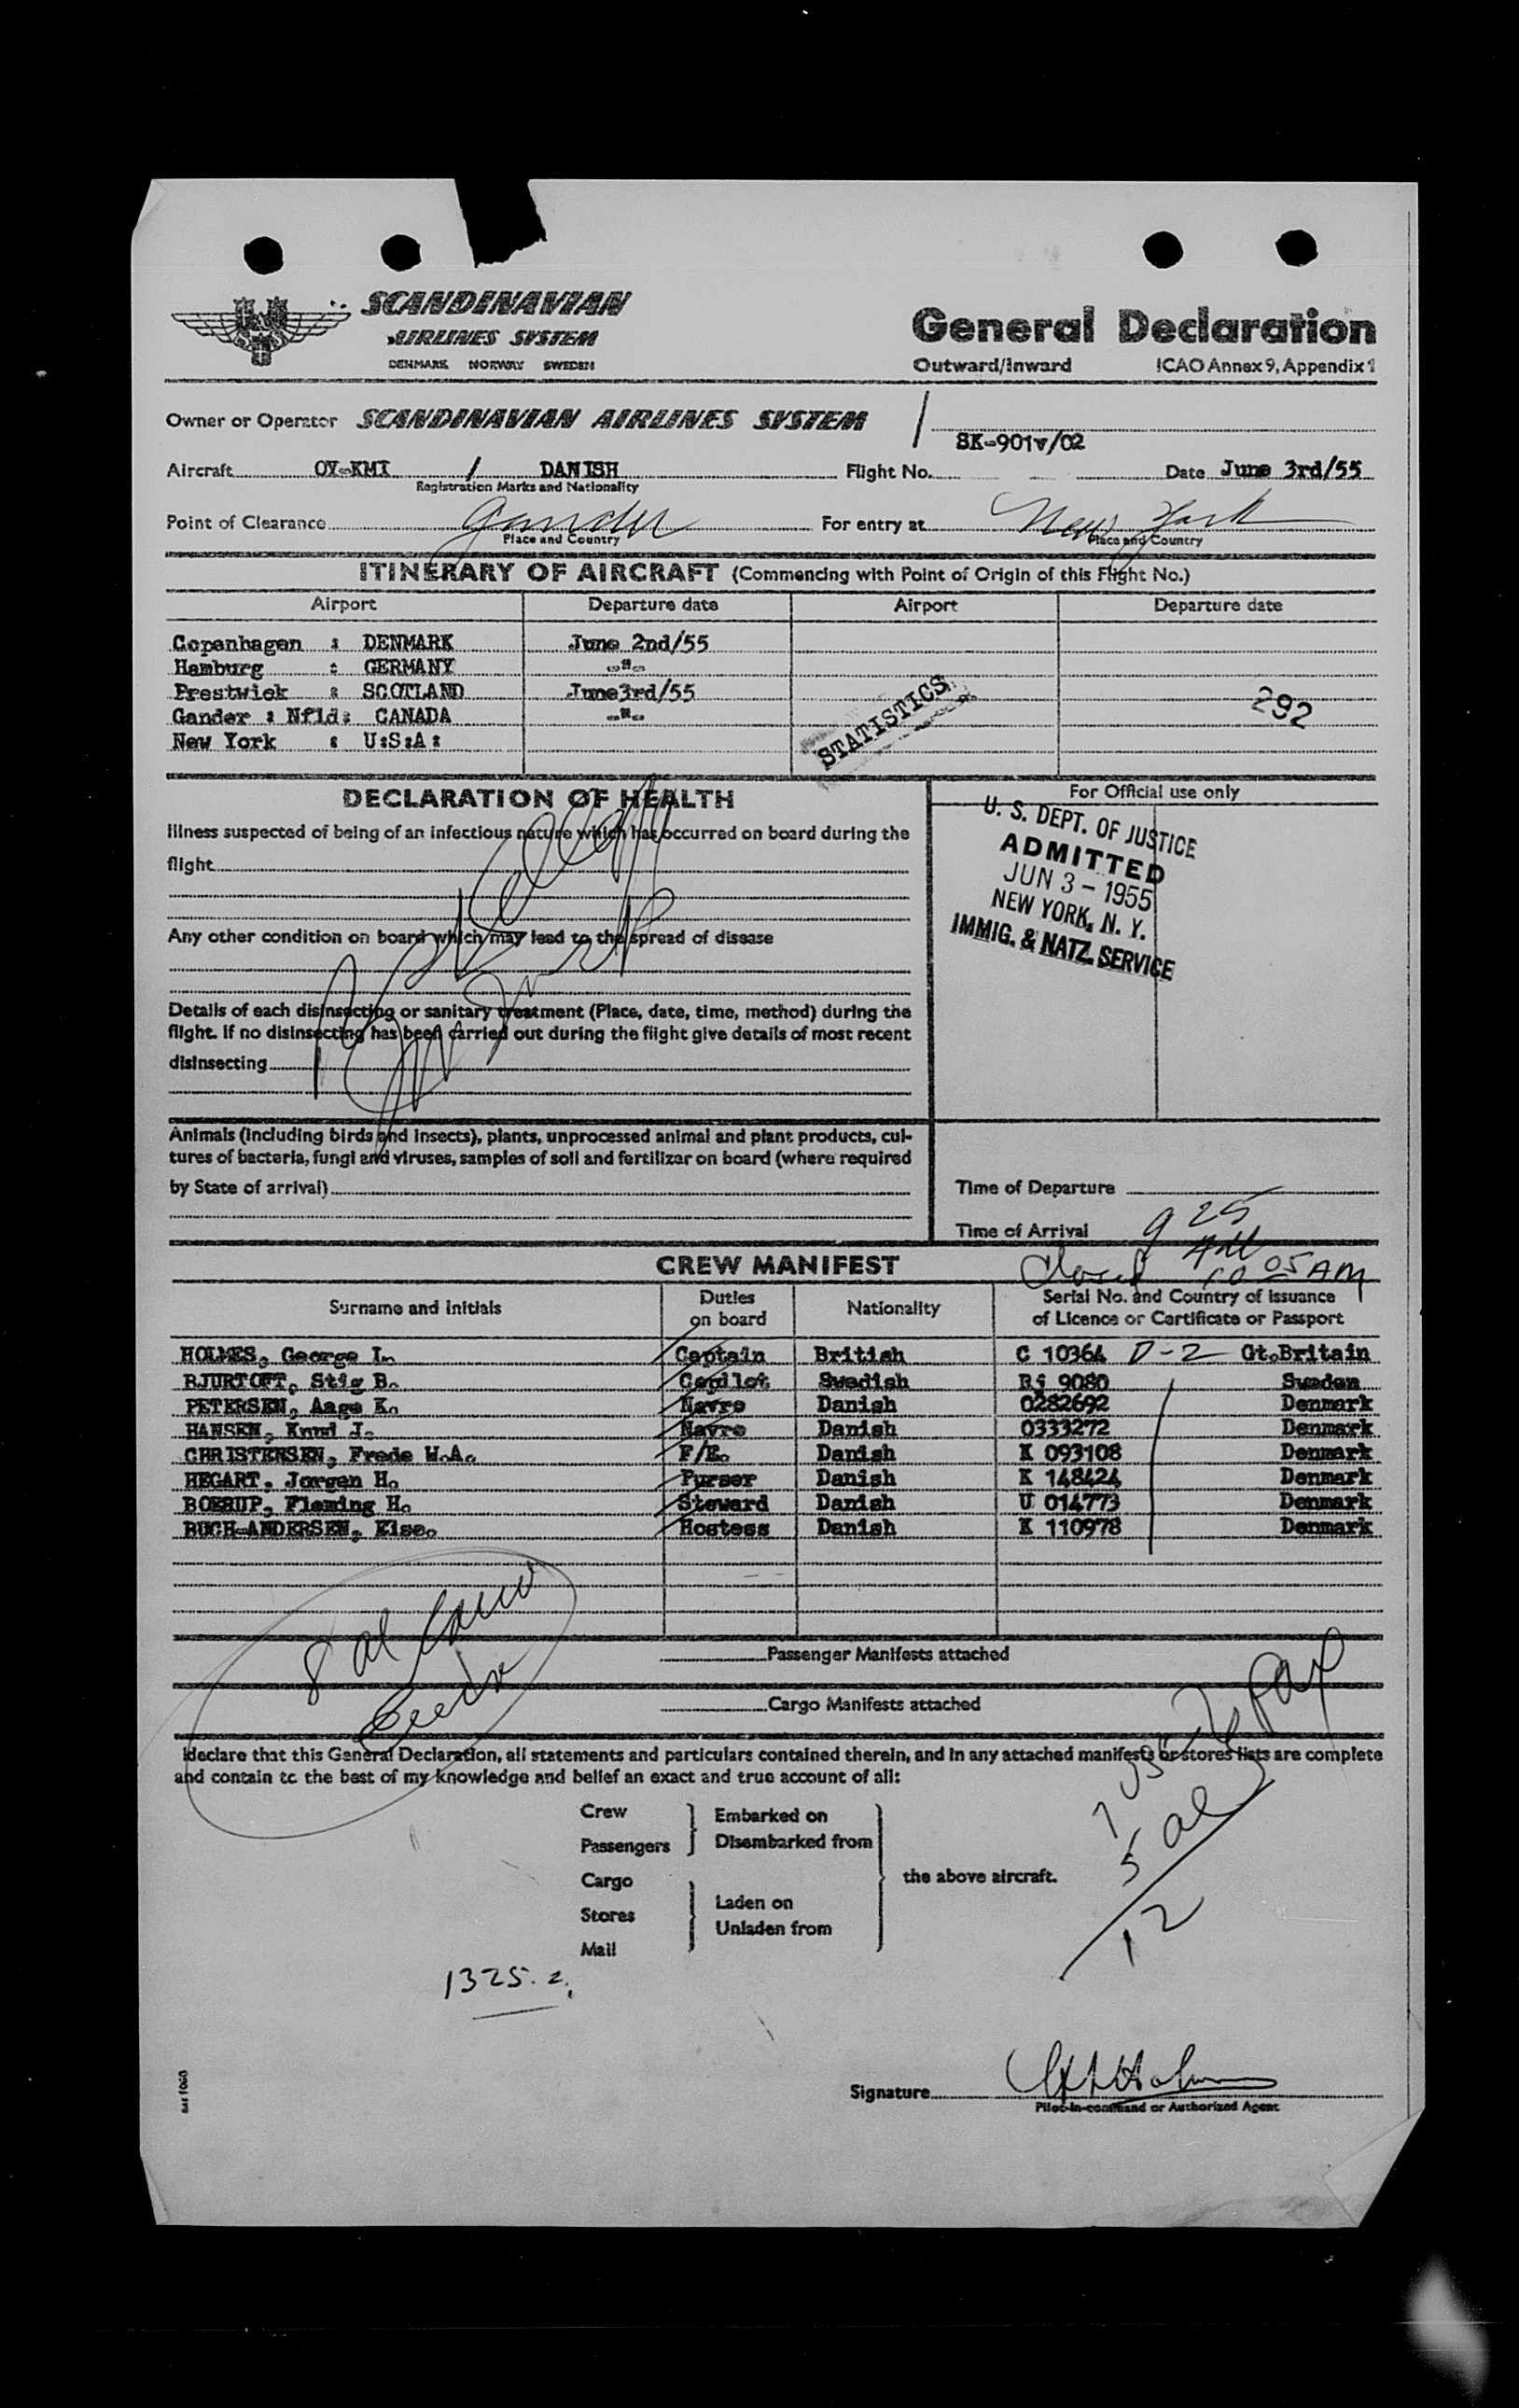 SCANDINAVIAN
AIRLINES SYSTEM
DENMARK NORWAY SWEDEN
General Declaration
Outward/Inward ICAO Annex 9, Appendix 1
Owner or Operator SCANDINAVIAN AIRLINES SYSTEM /
SK-901v/02
Aircraft OY-KMI / DANISH Flight No. Date June 3rd/55
Registration Marks and Nationality
Point of Clearance Gander For entry at New York
Place and Country Place and Country
ITINERARY OF AIRCRAFT (Commencing with Point of Origin of this Flight No.)
Airport Departure date Airport Departure date
Copenhagen : DENMARK June 2nd/55
Hamburg : GERMANY -"-
Prestwick : SCOTLAND June3rd/55
Gander : Nfld: CANADA -"-
New York : U:S:A:
STATISTICS
292
DECLARATION OF HEALTH
Illness suspected of being of an infectious nature which has occurred on board during the
flight
Any other condition on board which may lead to the spread of disease
Details of each disinsecting or sanitary treatment (Place, date, time, method) during the
flight. If no disinsecting has been carried out during the flight give details of most recent
disinsecting
For Official use only
U. S. DEPT. OF JUSTICE
ADMITTED
JUN 3 - 1955
NEW YORK, N. Y.
IMMIG. & NATZ. SERVICE
Animals (including birds and insects), plants, unprocessed animal and plant products, cul-
tures of bacteria, fungi and viruses, samples of soil and fertilizer on board (where required
by State of arrival)
Time of Departure
Time of Arrival 9 25 AM
Closed 10 05 AM
CREW MANIFEST
Surname and Initials Duties on board Nationality Serial No. and Country of issuance of Licence or Certificate or Passport
HOLMES, George L. Captain British C 10364 D-2 Gt.Britain
BJURTOFT, Stig B. Copilot Swedish Rj 9080 Sweden
PETERSEN, Aage K. Navro Danish 0282692 Denmark
HANSEN, Knud J. Navro Danish 0333272 Denmark
CHRISTENSEN, Frede W.A. F/E. Danish K 093108 Denmark
HEGART, Jorgen H. Purser Danish K 148424 Denmark
BOERUP, Fleming H. Steward Danish U 014773 Denmark
BUCH-ANDERSEN, Else. Hostess Danish K 110978 Denmark
8 al
Passenger Manifests attached
Cargo Manifests attached
I declare that this General Declaration, all statements and particulars contained therein, and in any attached manifests or stores lists are complete
and contain to the best of my knowledge and belief an exact and true account of all:
Crew
Passengers
Embarked on
Disembarked from
Cargo
Stores
Mail
Laden on
Unladen from
the above aircraft.
7 USC
5 al
Pax
12
1325.z.
Signature
Pilot-in-command or Authorized Agent
SAS 1060